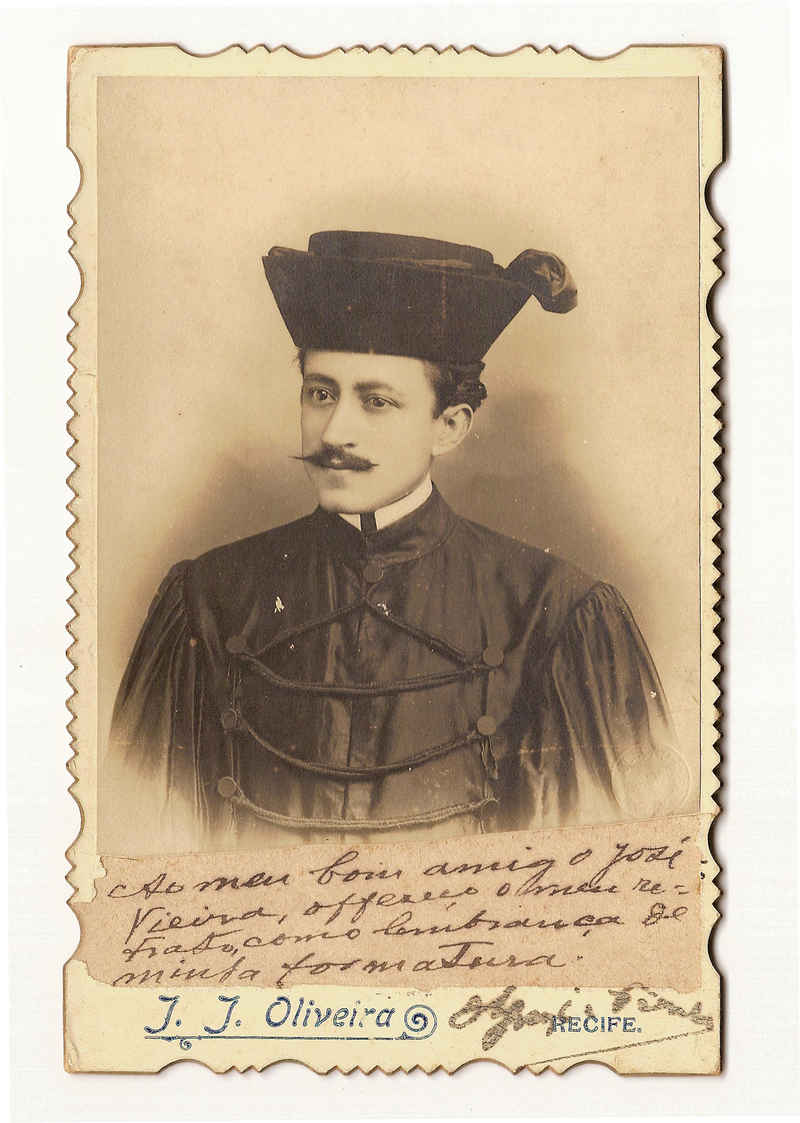 Ao meu bom amigo José
Vieira, offereço o meu re-
trato, como lembrança de
minha formatura.
J. J. Oliveira
RECIFE.